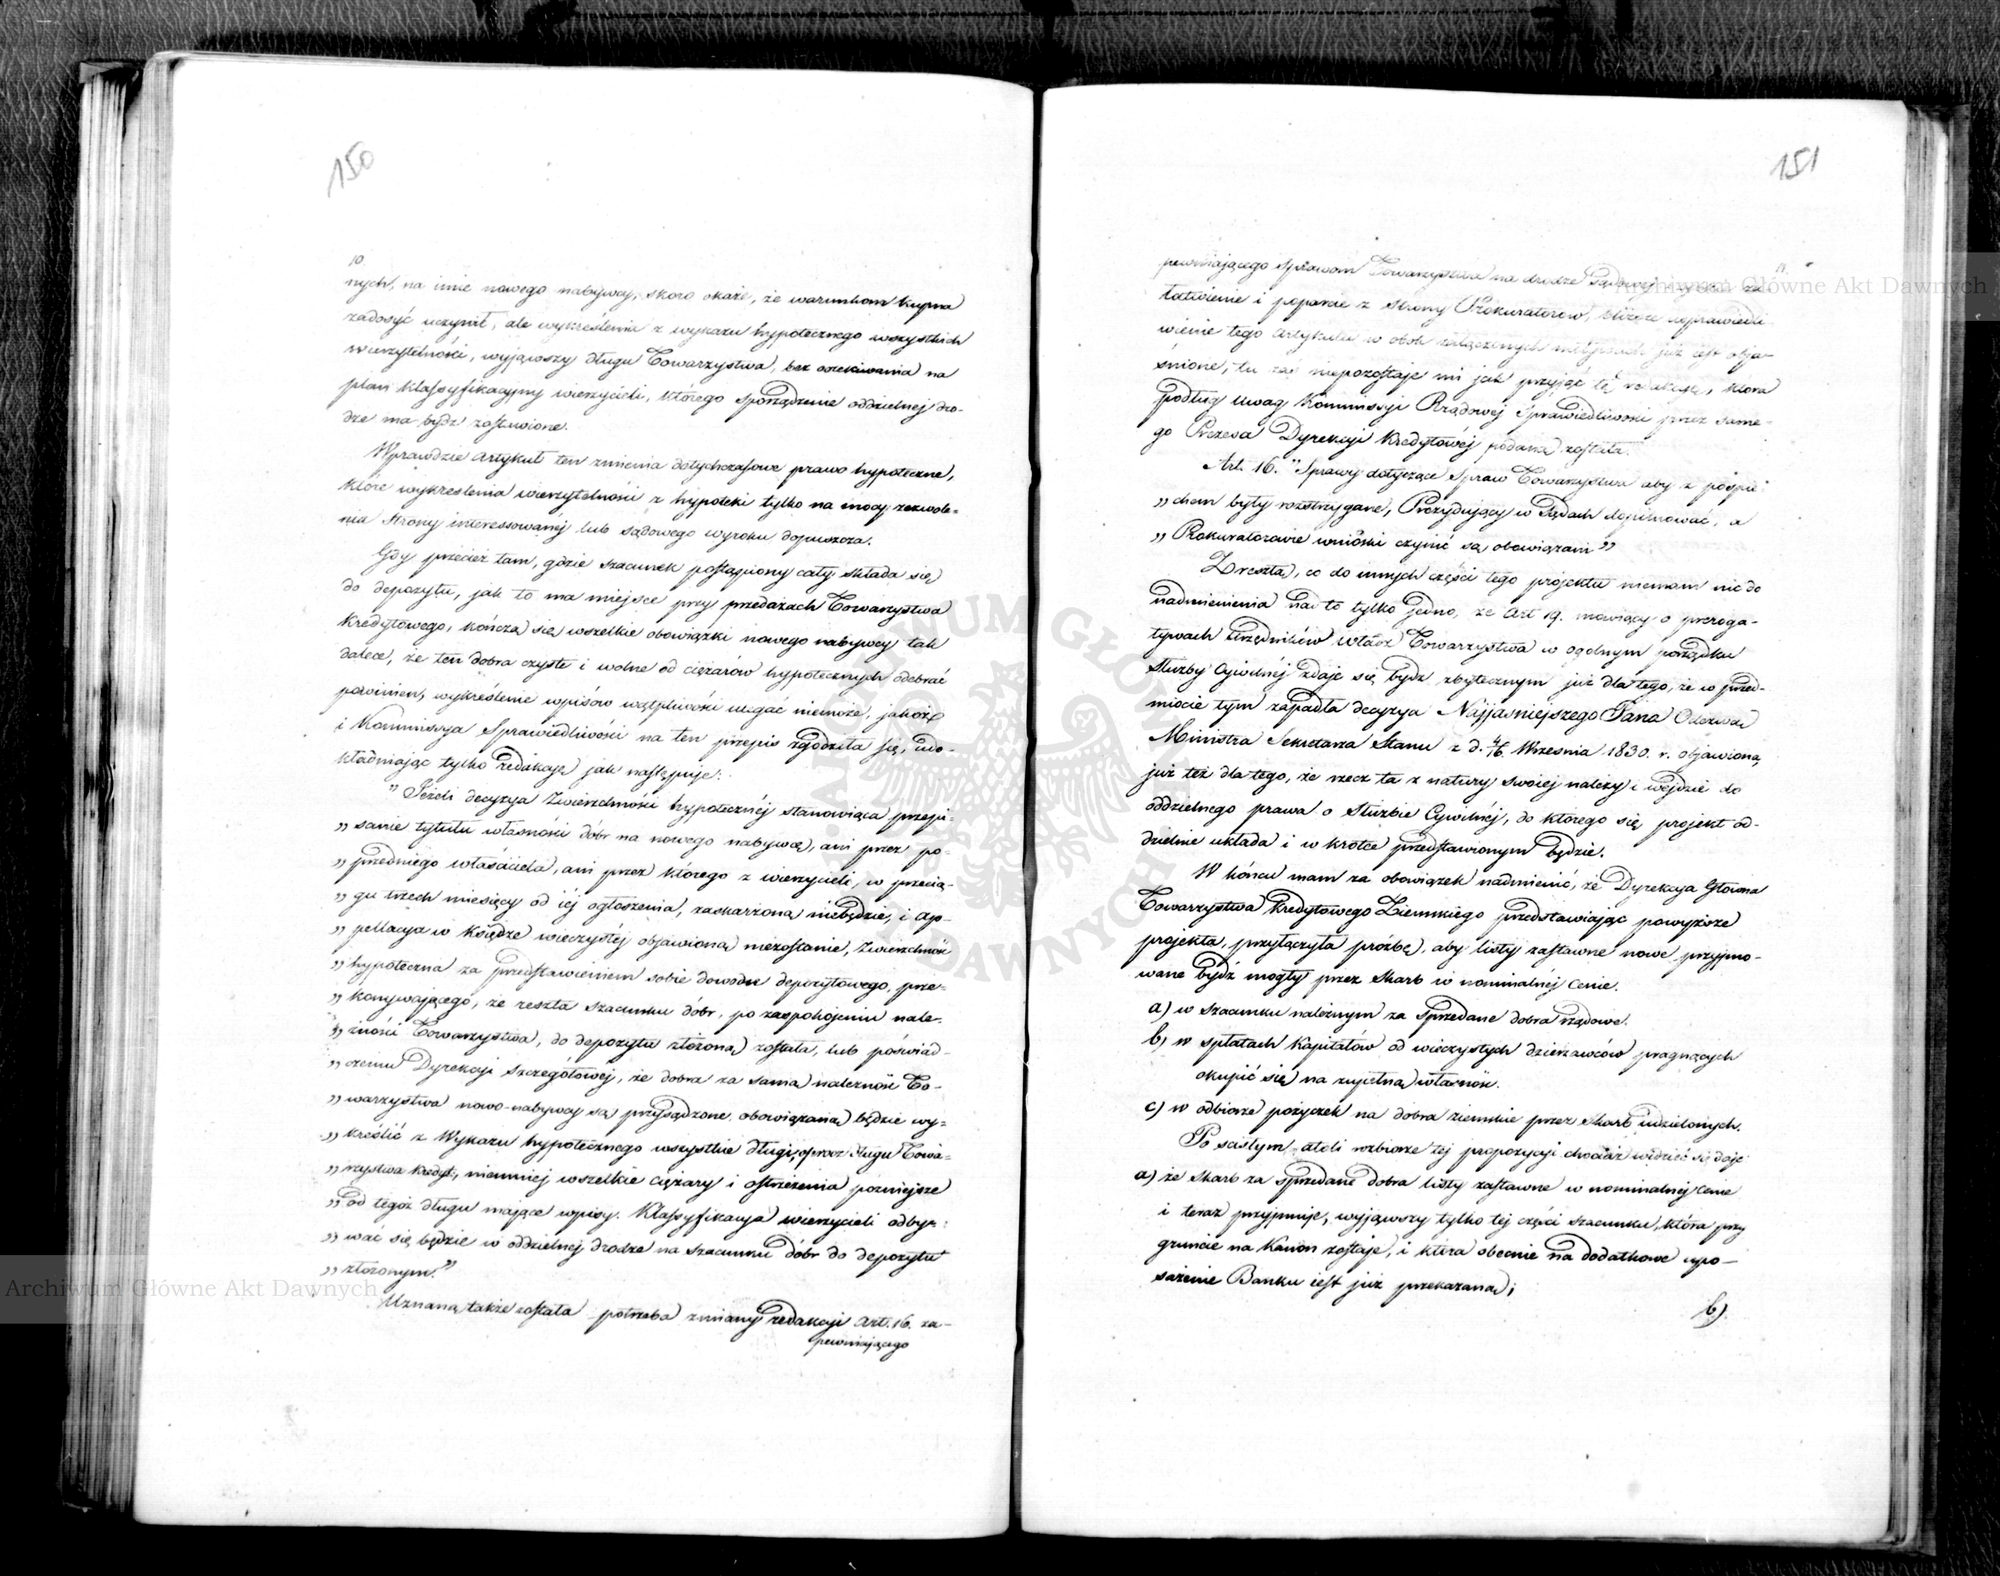 150
10
nych, na imie nowego nabywcy, skoro okaże, że warunkom kupna
zadosyć uczynił, ale wykreślenia z wykazu hypotecznego wszystkich
wierzytelności, wyjąwszy długu Towarzystwa, bez oczekiwania na
plan klassyfikacyjny wierzycieli, którego sporządzenie oddzielnej dro-
dze ma bydź zostawione.
Wprawdzie artykuł ten zmienia dotychczasowe prawo hypoteczne,
które wykreślenia wierzytelności z hypoteki tylko na mocy zezwole-
nia strony interessowanéj lub sądowego wyroku dopuszcza.
Gdy przecież tam, gdzie szacunek postąpiony cały składa się
do depozytu, jak to ma miejsce przy przedażach Towarzystwa
Kredytowego, kończą się wszelkie obowiązki nowego nabywcy tak
dalece, że ten dobra czyste i wolne od ciężarów hypotecznych odebrać
powinien, wykreślenie wpisów wątpliwości ulegać niemoże, jakoż
i Kommissya Sprawiedliwości na ten przepis zgodziła się, udo-
kładniając tylko redakcyą jak następuje:
"Jeżeli decyzya Zwierzchności hypotecznéj stanowiąca przepi-
„sanie tytułu własności dóbr na nowego nabywcę, ani przez po-
„przedniego właściciela, ani przez którego z wierzycieli, w przecią-
„gu trzech miesięcy od iéj ogłoszenia, zaskarżoną niebędzie, i ap-
„pellacya w Księdze wieczystéj objawioną niezostanie, Zwierzchność
„hypoteczna za przedstawieniem sobie dowodu depozytowego, prze-
„konywającego, że reszta szacunku dóbr, po zaspokojeniu nale-
„żności Towarzystwa, do depozytu złożoną została, lub poświad-
„czeniu Dyrekcji szczegółowej, że dobra za samą należność To-
„warzystwa nowo-nabywcy są przysądzone, obowiązaną będzie wy-
„kreślić z Wykazu hypotecznego wszystkie długi, oprócz długu Towa-
„rzystwa Kredyt:, niemniej wszelkie ciężary i ostrzeżenia pozniejsze
„od tegoż długu mające wpisy. Klassyfikacya wierzycieli odby-
„wać się będzie w oddzielnej drodze na szacunku dóbr do depozytu
„złożonym."
Uznaną także została potrzeba zmiany redakcyi Art. 16. za-
pewniającego
151
11.
pewniającego sprawom Towarzystwa na drodze Sądowej za
łatwienie i poparcie z strony Prokuratorów, bliższe usprawiedli
wienie tego artykułu w obok załączonych motywach już iest obja-
śnione, tu zaś niepozostaje mi jak przyjąć tę redakcyą, która
podług uwag Kommissyi Rządowéj Sprawiedliwości przez same-
go Prezesa Dyrekcji Kredytowéj podana została.
Art. 16. "Sprawy dotyczące Spraw Towarzystwa aby z pośpie
„chem były rozstrzygane, Prezydujący w Sądach dopilnować, a
„Prokuratorowie wnioski czynić są obowiązani"
Zresztą, co do innych części tego projektu niemam nic do
nadmienienia nad to tylko jedno, że art 19. mówiący o preroga-
tywach Urzędników Władz Towarzystwa w ogólnym porządku
Służby Cywilnéj zdaje się bydz zbytecznym już dla tego, że w przed-
miocie tym zapadła decyzya Najjaśniejszego Pana Odezwą
Ministra Sekretarza Stanu z d. 4/16. Września 1830. r. objawiona,
już też dla tego, że rzecz ta z natury swoiéj należy i wejdzie do
oddzielnego prawa o Służbie Cywilnéj, do którego się projekt od-
dzielnie układa i w krótce przedstawionym będzie.
W końcu mam za obowiązek nadmienić, że Dyrekcya Główna
Towarzystwa Kredytowego Ziemskiego przedstawiając powyższe
projekta, przyłączyła prózbę, aby listy zastawne nowe przyjmo-
wane bydź mogły przez Skarb w nominalnéj Cenie.
a) w szacunku należnym za sprzedane dobra rządowe.
b) w spłatach Kapitałów od wieczystych dzierżawców pragnących
okupić się na zupełną własność.
c) w odbiorze pożyczek na dobra ziemskie przez Skarb udzielonych.
Po scisłym atoli rozbiorze tej propozycji chociaż widzieć się daje
a) że Skarb za sprzedane dobra listy zastawne w nominalnéj Cenie
i teraz przyjmuje, wyjąwszy tylko tej części szacunku, która przy
gruncie na Kanon zostaje, i która obecnie na dodatkowe upo-
sażenie Banku iest już przekazana;
b).
Archiwum Główne Akt Dawnych
Archiwum Główne Akt Dawnych
ARCHIWUM GŁÓWNE AKT DAWNYCH